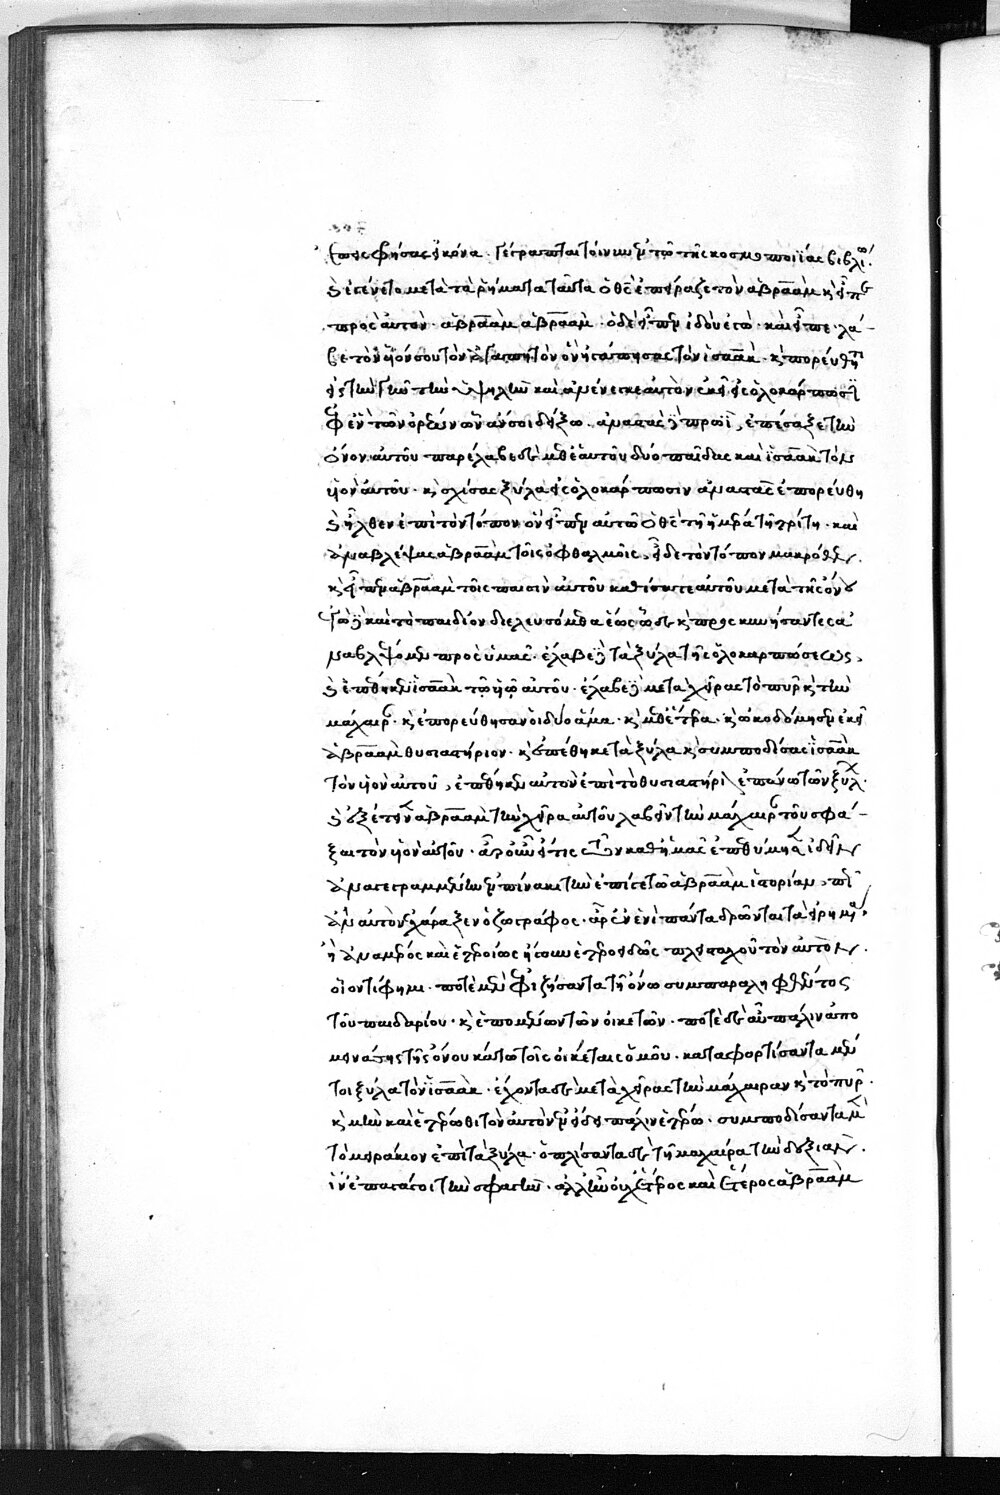 ζωγραφήσας εἰκόνα. γέγραπται τοίνυν ἐν τῷ τῆς κοσμοποιΐας βιβλίῳ.
καὶ ἐγένετο μετὰ τὰ ῥήματα ταῦτα ὁ θεὸς ἐπείραξε τὸν ἁβραὰμ καὶ εἶπε
πρὸς αὐτὸν. ἁβραὰμ ἁβραάμ. ὁ δὲ εἶπεν ἰδοὺ ἐγώ. καὶ εἶπε. λά-
βε τὸν υἱόν σου τὸν ἀγαπητὸν ὃν ἠγάπησας τὸν ἰσαάκ. καὶ πορεύθητι
εἰς τὴν γῆν τὴν ὑψηλὴν καὶ ἀνένεγκε αὐτὸν ἐκεῖ εἰς ὁλοκάρπωσιν
ἐφ' ἓν τῶν ὀρέων ὧν ἄν σοι δείξω. ἀναστὰς δὲ πρωῒ, ἐπέσαξε τὴν
ὄνον αὐτοῦ παρέλαβε δὲ μεθ' ἑαυτοῦ δύο παῖδας καὶ ἰσαὰκ τὸν
υἱὸν αὐτοῦ. καὶ σχίσας ξύλα εἰς ὁλοκάρπωσιν ἀναστὰς ἐπορεύθη
καὶ ἦλθεν ἐπὶ τὸν τόπον ὃν εἶπεν αὐτῷ ὁ θεὸς τῇ ἡμέρᾳ τῇ τρίτῃ. καὶ
ἀναβλέψας ἁβραὰμ τοῖς ὀφθαλμοῖς, εἶδε τὸν τόπον μακρόθεν.
καὶ εἶπεν ἁβραὰμ τοῖς παισὶν αὐτοῦ καθίσατε αὐτοῦ μετὰ τῆς ὄνου
ἐγὼ δὲ καὶ τὸ παιδίον διελευσόμεθα ἕως ὧδε καὶ προσκυνήσαντες ἀ
ναστρέψομεν πρὸς ὑμᾶς. ἔλαβε δὲ τὰ ξύλα τῆς ὁλοκαρπώσεως,
καὶ ἐπέθηκεν ἰσαὰκ τῷ υἱῷ αὐτοῦ. ἔλαβε δὲ μετὰ χεῖρας τὸ πῦρ καὶ τὴν
μάχαιραν. καὶ ἐπορεύθησαν οἱ δύο ἅμα. καὶ μεθ' ἕτερα. καὶ ᾠκοδόμησεν ἐκεῖ
ἁβραὰμ θυσιαστήριον. καὶ ἐπέθηκε τὰ ξύλα καὶ συμποδίσας ἰσαὰκ
τὸν υἱὸν αὐτοῦ, ἐπέθηκεν αὐτὸν ἐπὶ τὸ θυσιαστήριον ἐπάνω τῶν ξύλων.
καὶ ἐξέτεινεν ἁβραὰμ τὴν χεῖρα αὐτοῦ λαβεῖν τὴν μάχαιραν τοῦ σφά-
ξαι τὸν υἱὸν αὐτοῦ. ἆρ' οὖν εἴ τις τῶν καθ' ἡμᾶς ἐπεθύμησεν ἰδεῖν
ἀναγεγραμμένην ἐν πίνακι τὴν ἐπί γε τῷ ἁβραὰμ ἱστορίαν,
ἂν αὐτὸν ἐχάραξεν ὁ ζωγράφος. ἆρ' ἐν ἑνὶ πάντα δρῶντα τὰ εἰρημένα.
ἢ ἀναμέρος καὶ ἑτεροίως ἤγουν ἑτεροειδῶς πλεισταχοῦ τὸν αὐτόν.
οἷόν τι φημι. ποτὲ μὲν ἐφιζήσαντα τῇ ὄνῳ συμπαραληφθέντος
τοῦ παιδαρίου. καὶ ἑπομένων τῶν οἰκετῶν. ποτὲ δὲ αὖ πάλιν ἀπο
μεινάσης τῆς ὄνου κάτω τοῖς οἰκέταις ὁμοῦ. καταφορτίσαντα μέν
τοι ξύλα τὸν ἰσαάκ. ἔχοντα δὲ μετὰ χεῖρας τὴν μάχαιραν καὶ τὸ πῦρ.
καὶ μὴν καὶ ἑτέρωθι τὸν αὐτὸν ἐν εἴδει πάλιν ἑτέρῳ. συμποδίσαντα μὲν
τὸ μειράκιον ἐπὶ τὰ ξύλα. ὁπλίσαντα δὲ τῇ μαχαίρᾳ τὴν δεξιὰν.
ἵν' ἐπαγάγοι τὴν σφαγὴν. ἀλλ' ἦν οὐχ ἕτερος καὶ ἕτερος ἁβραὰμ